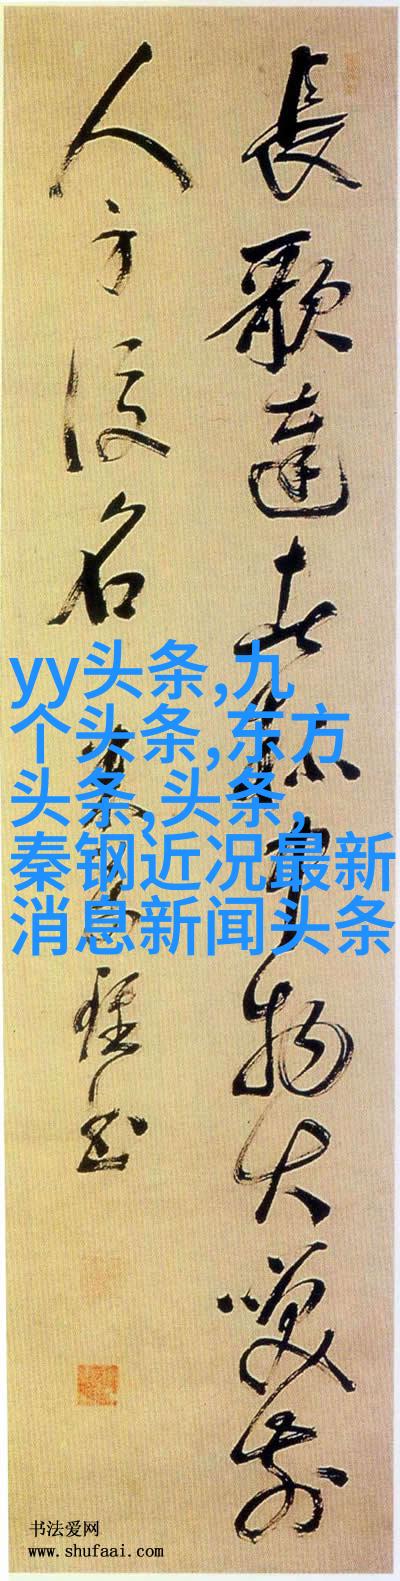 長歌達者杯中物大笑前
人身後名 米萬鍾書
yy头条,九
个头条,东方
头条,头条,
秦钢近况最新
消息新闻头条
书法爱网
www.shufaai.com